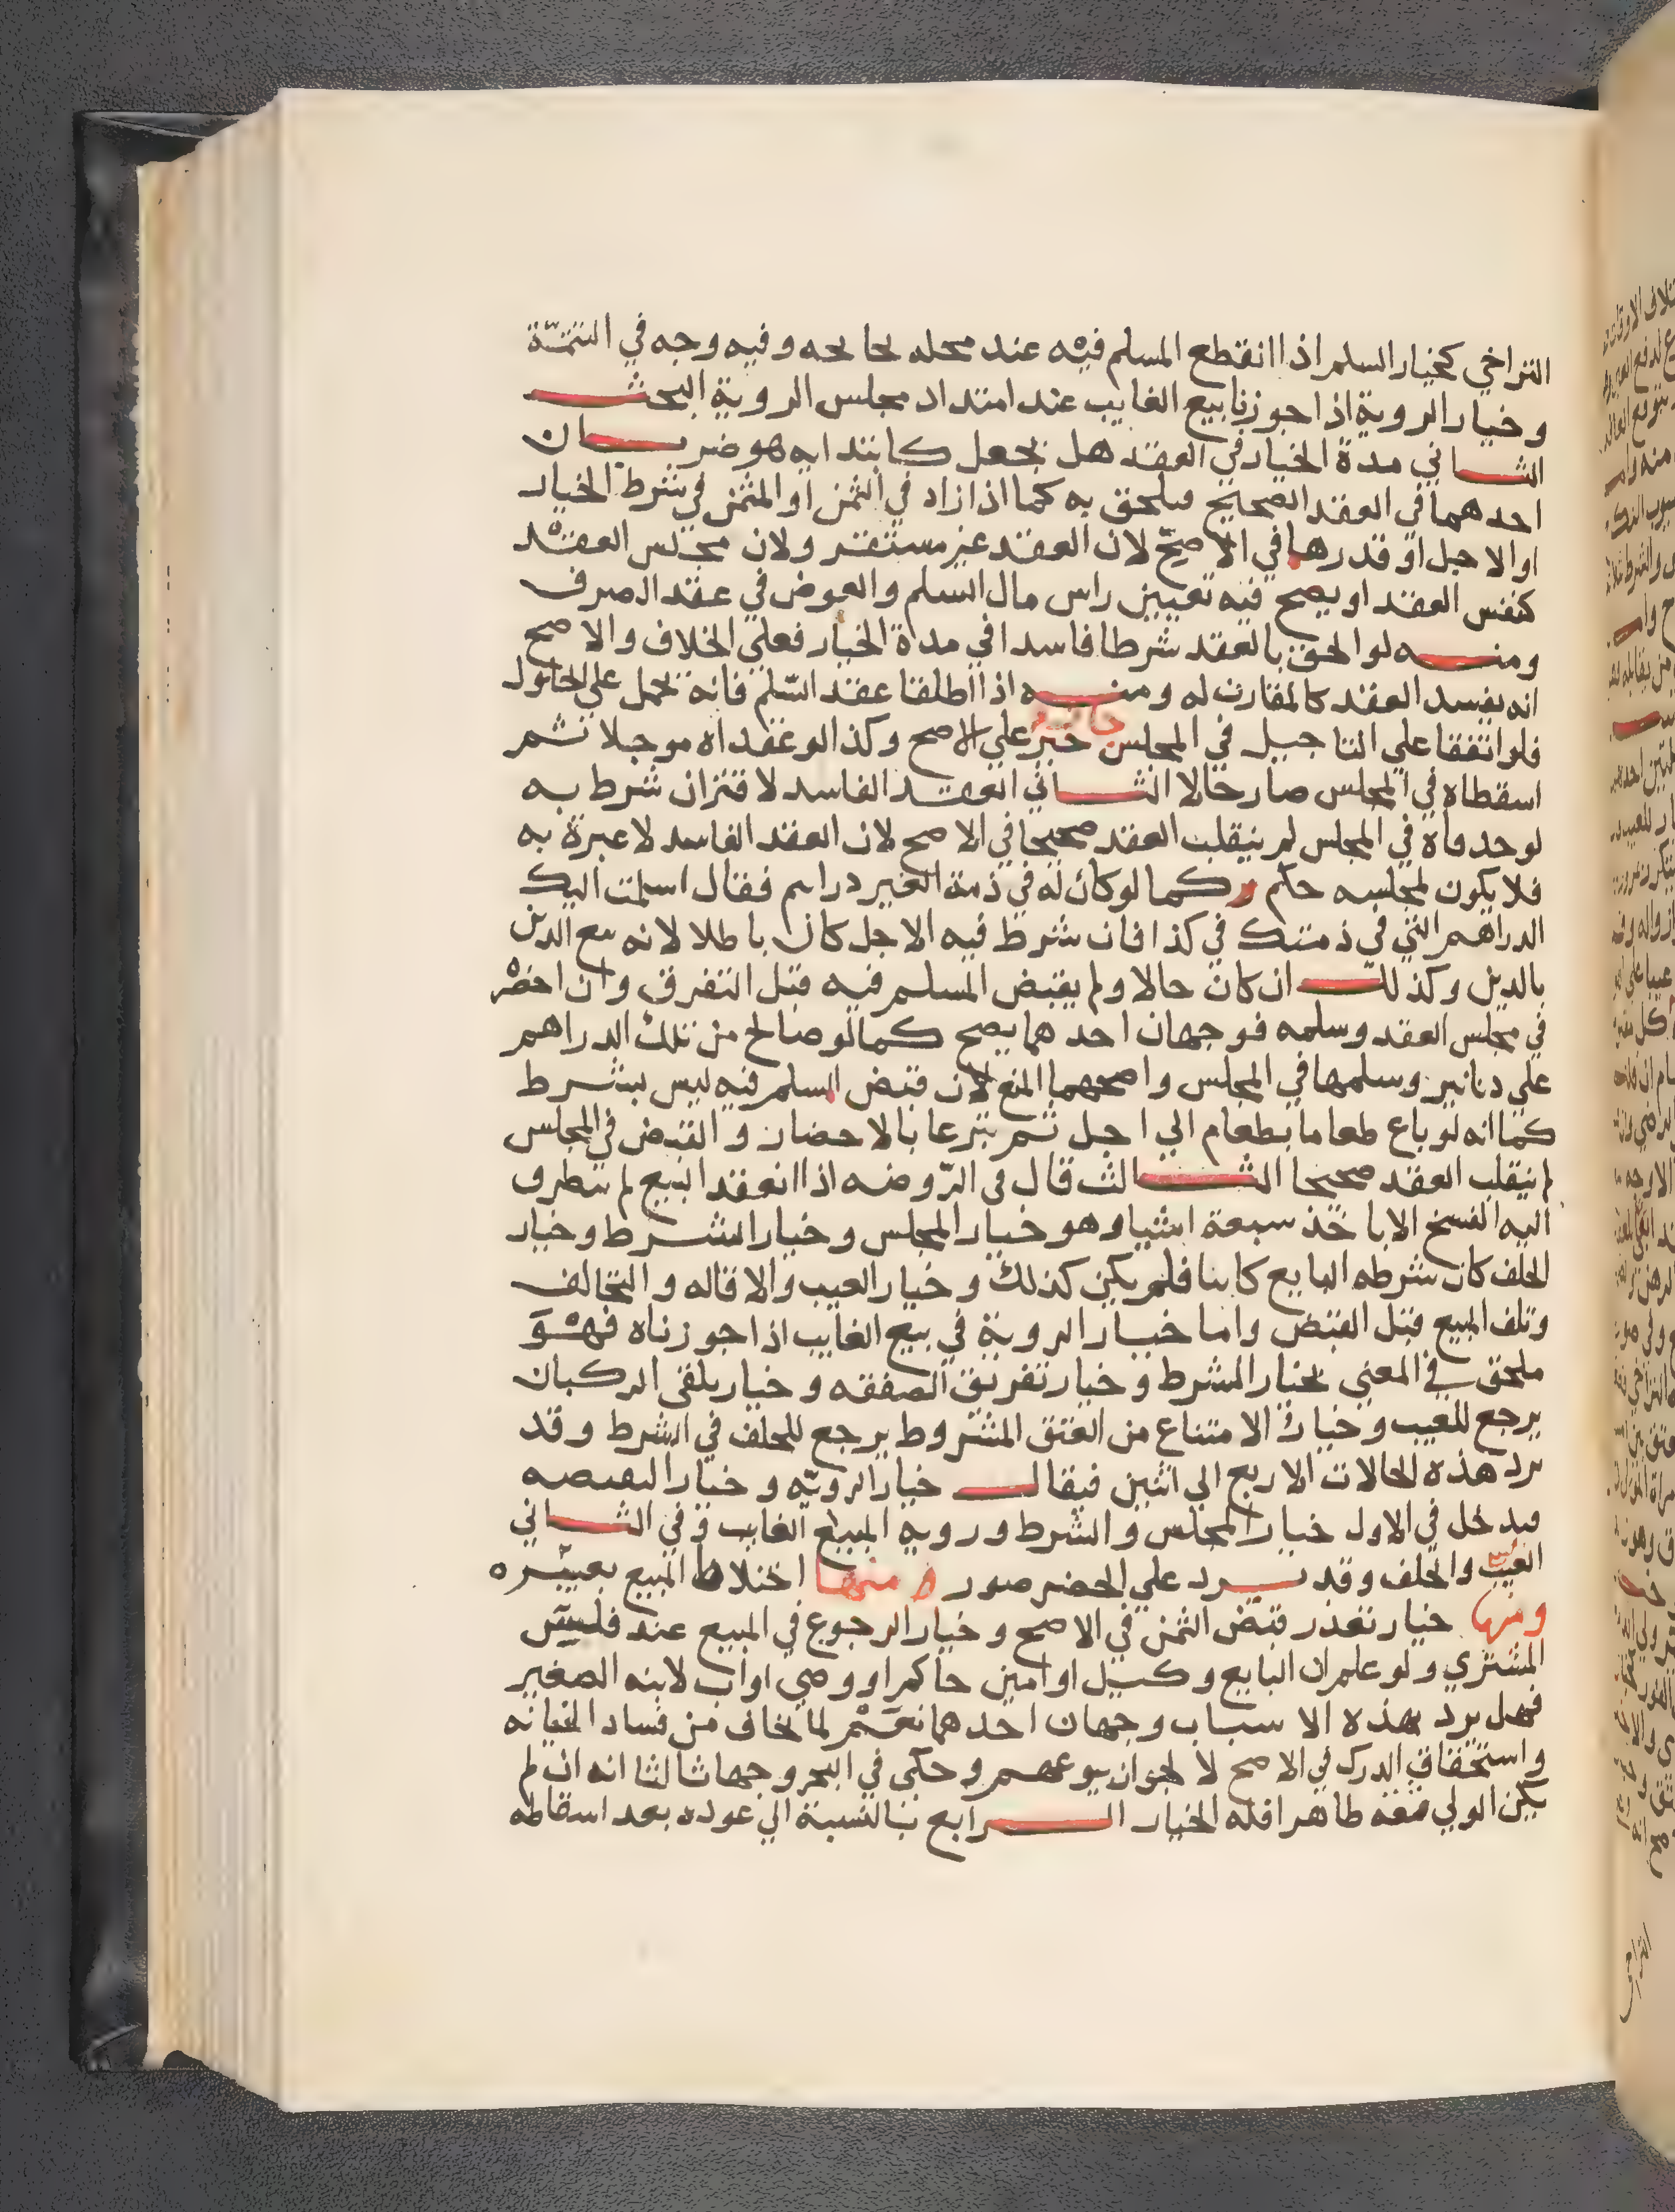 التراخي كخيار السلم اذا انقطع المسلم فيه عند محله وفيه وجه في التتمة
وخيار الروية اذا جوزنا بيع الغايب عند امتداد مجلس الروية البحث
الثاني مدة الخيار في العقد هل يجعل كابتدايه هو ضربان
احدهما في العقد الصحيح فيلحق به كما اذا زاد في الثمن او المثمن في شرط الخيار
او الاجل او قدرهما في الاصح لان العقد غير مستقر ولان مجلس العقد
كنفس العقد او يصح فيه تعيين راس مال السلم والعوض في عقد الصرف
ومنه لو الحق بالعقد شرطا فاسدا في مدة الخيار فعلي الخلاف والاصح
انه يفسد العقد كالمقارن له ومنه اذا اطلقا عقد السلم فانه يحمل علي الحلول
فلو اتفقا علي التاجيل في المجلس علي الاصح وكذا لو عقداه موجلا ثم
اسقطاه في المجلس صار حالا الثاني العقد الفاسد لاقتران شرط به
لو حدفاه في المجلس لم ينقلب العقد صحيحا في الاصح لان العقد الفاسد لا عبرة به
فلا يكون لمجلسه حكم وكما لو كان له في ذمة الغير دراهم فقال اسلمت اليك
الدراهم التي في ذمتك في كذا فان شرط فيه الاجل كان باطلا لانه بيع الدين
بالدين وكذلك ان كان حالا ولم يقبض المسلم فيه قبل التفرق وان احضر
في مجلس العقد وسلمه فوجهان احدهما يصح كما لو صالح من تلك الدراهم
علي دنانير وسلمها في المجلس واصحهما المنع لان قبض المسلم فيه ليس بشرط
كما انه لو باع طعاما بطعام الي اجل ثم تبرعا بالاحضار والقبض في المجلس
لم ينقلب العقد صحيحا الثالث قال في الروضه اذا انعقد البيع لم يتطرق
اليه الفسخ الا باخذ سبعة اشيا وهو خيار المجلس وخيار الشرط وخيار
الخلف كان شرطه البايع كابنا فلم يكن كذلك وخيار العيب والاقاله والتحالف
وتلف المبيع قبل القبض واما خيار الروية في بيع الغايب اذا جوزناه فهو
ملحق في المعني بخيار الشرط وخيار تفريق الصفقه وخيار تلقي الركبان
يرجع للعيب وخيار الامتناع من العتق المشروط يرجع للخلف في الشرط وقد
يرد هذه الحالات الاربع الي اثنين فيقال خيار الرويه وخيار النقيصه
فيدخل في الاول خيار المجلس والشرط وروية المبيع الغايب وفي الثاني
العيب والخلف وقد يرد علي الحصر صور منها اختلاط المبيع بغيره
ومنها خيار تعذر قبض الثمن في الاصح وخيار الرجوع في المبيع عند فلس
المشتري ولو علم ان البايع وكيل او امين حاكم او وصي او اب لابنه الصغير
فهل يرد بهذه الاسباب وجهان احدهما نعم لما يخاف من فساد الخيانه
واستحقاق الدرك في الاصح لا لجواز بيوعهم وحكي في البحر وجها ثالثا انه ان لم
يكن الولي ثقه ظاهرا فله الخيار الرابع بالنسبة الي عوده بعد اسقاطه